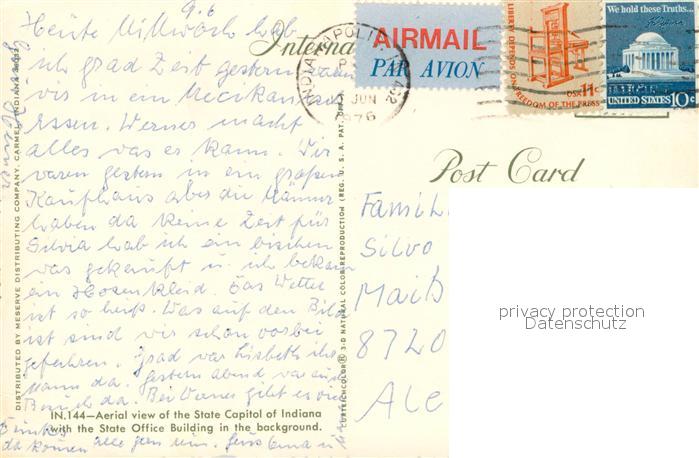 9.6
Heute Mittwoch hab
ich grad Zeit gestern waren
wir in ein
Essen. Werner macht
alles was er kann. Wir
waren gestern in ein großen
Kaufhaus aber die Männer
haben da keine Zeit für
Silvia hab ich ein bischen
was gekauft u. ich bekam
ein Hosenkleid. Das Wetter
ist so heiß. Was auf den Bild
ist sind wir schon vorbei
gefahren. Grad war Lisbeth ihr
Mann da. Gestern abend war auch
Besuch da. Bei Werner gibt es viel
da kommen alle gern
DISTRIBUTED BY MESERVE DISTRIBUTING COMPANY, CARMEL, INDIANA
CURTEICHCOLOR® 3-D NATURAL COLOR REPRODUCTION (REG. U. S. A. PAT. OFF.)
IN.144—Aerial view of the State Capitol of Indiana
with the State Office Building in the background.
Interna
Post Card
INDIANAPOLIS
P
JUN
1976
462
AIRMAIL
PAR AVION
LIBERTY DEPENDS ON
FREEDOM OF THE PRESS
USA 11c
We hold these Truths...
UNITED STATES 10c
Famil
Silvo
Maiß
8720
Ale
privacy protection
Datenschutz